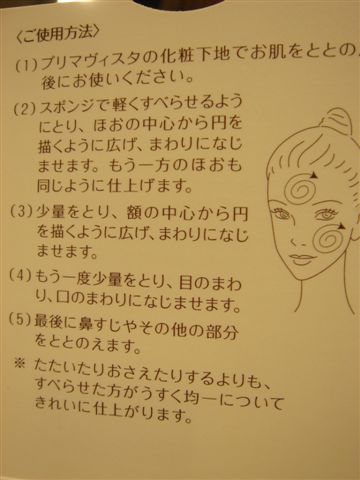 〈ご使用方法〉
(1)プリマヴィスタの化粧下地でお肌をととの
後にお使いください。
(2)スポンジで軽くすべらせるよう
にとり、ほおの中心から円を
描くように広げ、まわりになじ
ませます。もう一方のほおも
同じように仕上げます。
(3)少量をとり、額の中心から円
を描くように広げ、まわりになじ
ませます。
(4)もう一度少量をとり、目のまわ
り、口のまわりになじませます。
(5)最後に鼻すじやその他の部分
をととのえます。
※ たたいたりおさえたりするよりも、
すべらせた方がうすく均一について
きれいに仕上がります。